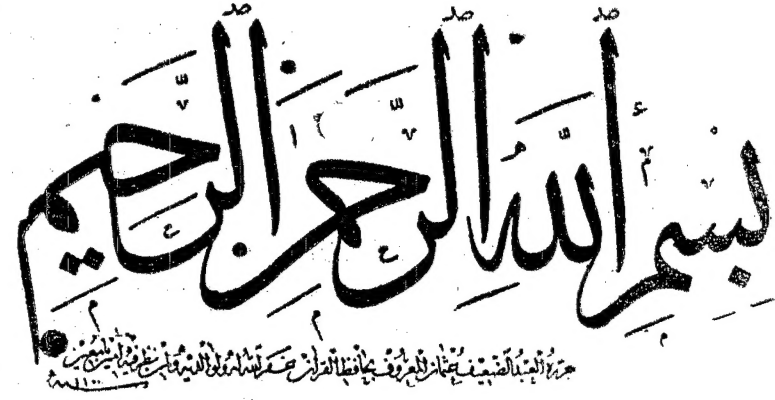 بِسْمِ ٱللَّهِ ٱلرَّحْمَٰنِ ٱلرَّحِيمِ
حرره العبد الضعيف عثمان المعروف بحافظ القرآن غفر الله له ولوالديه ولمن نظر فيه آمين